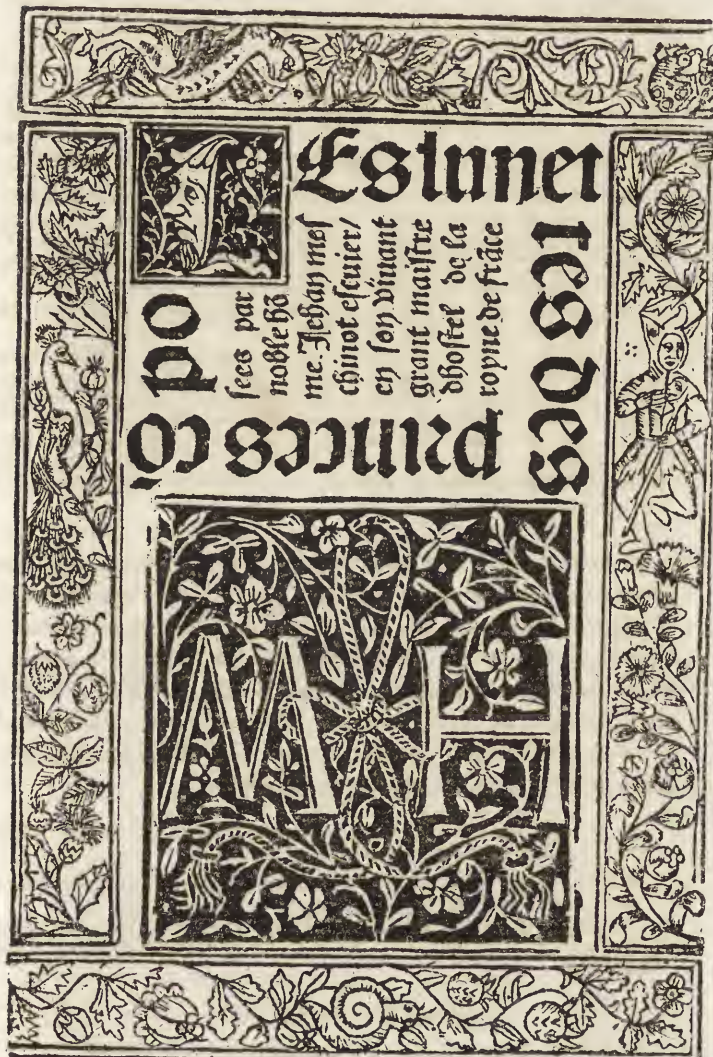 LEs lunet
tes des
princes cō
po
ſees par
noble hō
me. Jehan meſ
chinot eſcuier/
en ſon viuant
grant maiſtre
dhoſtel de la
royne de frāce
M H